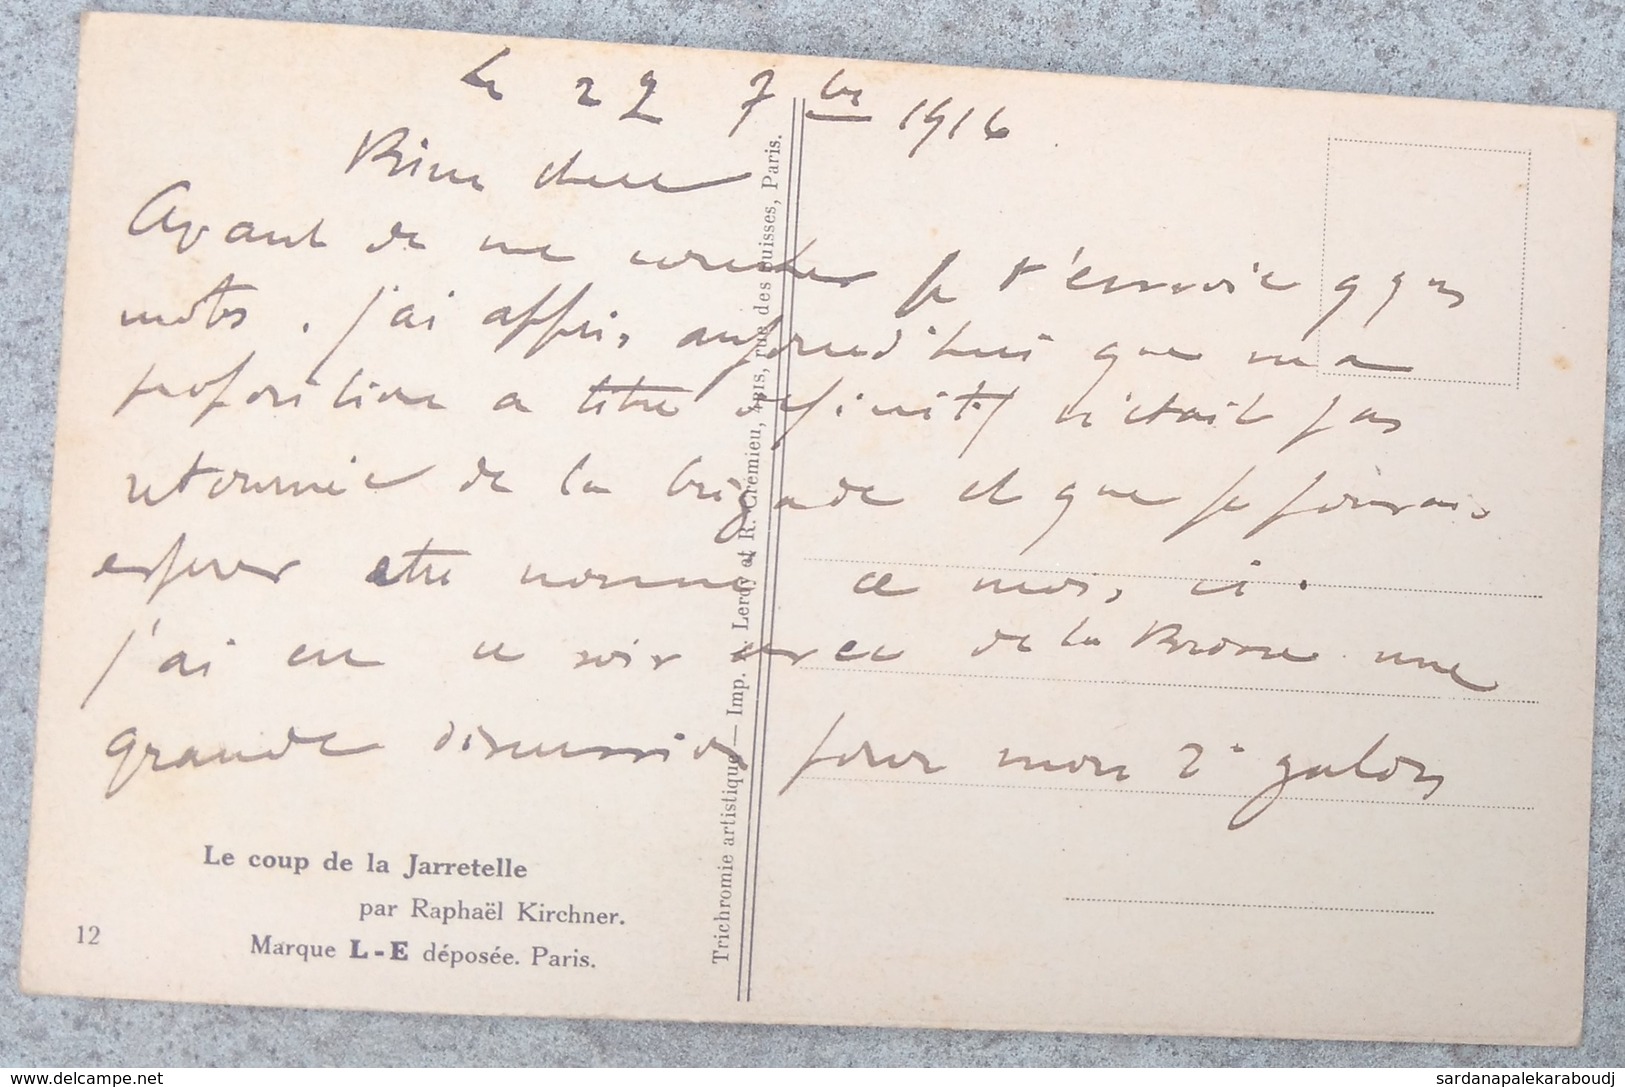 Le 22 7bre 1916
Bien chere
Avant de me coucher je t'envoie qques
mots. j'ai appris aujourd'hui que ma
proposition a titre definitif n'etait pas
retournée de la brigade et que je pourrais
esperer etre nommé ce mois ci.
j'ai eu ce soir avec de la Brosse une
grande discussion pour mon 2e galon
Le coup de la Jarretelle
par Raphaël Kirchner.
12
Marque L-E déposée. Paris.
Trichromie artistique — Imp. L. Leroy et R. Crémieu, rue des Suisses, Paris.
delcampe.net
sardanapalekaraboudj